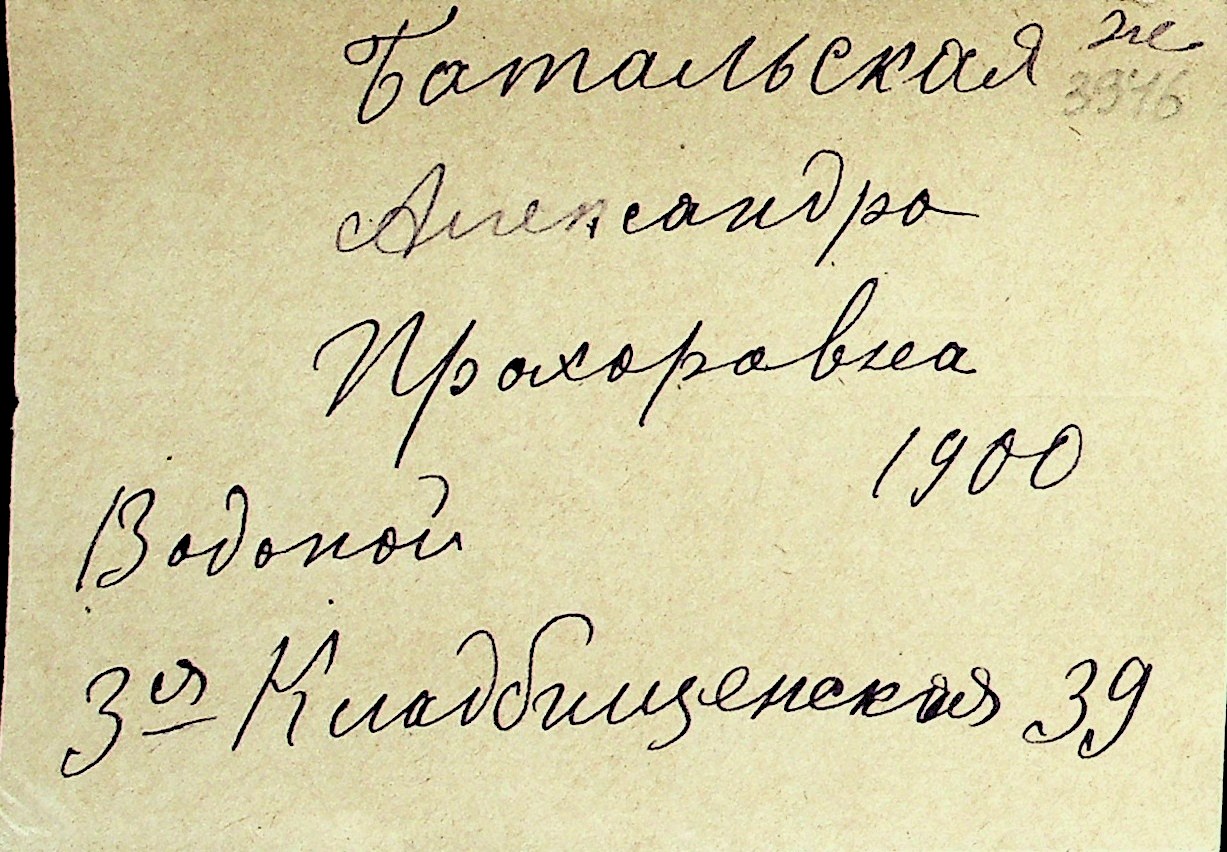 Батальская
Александра
Прохоровна
1900
Водопой
3ья Кладбищенская 39